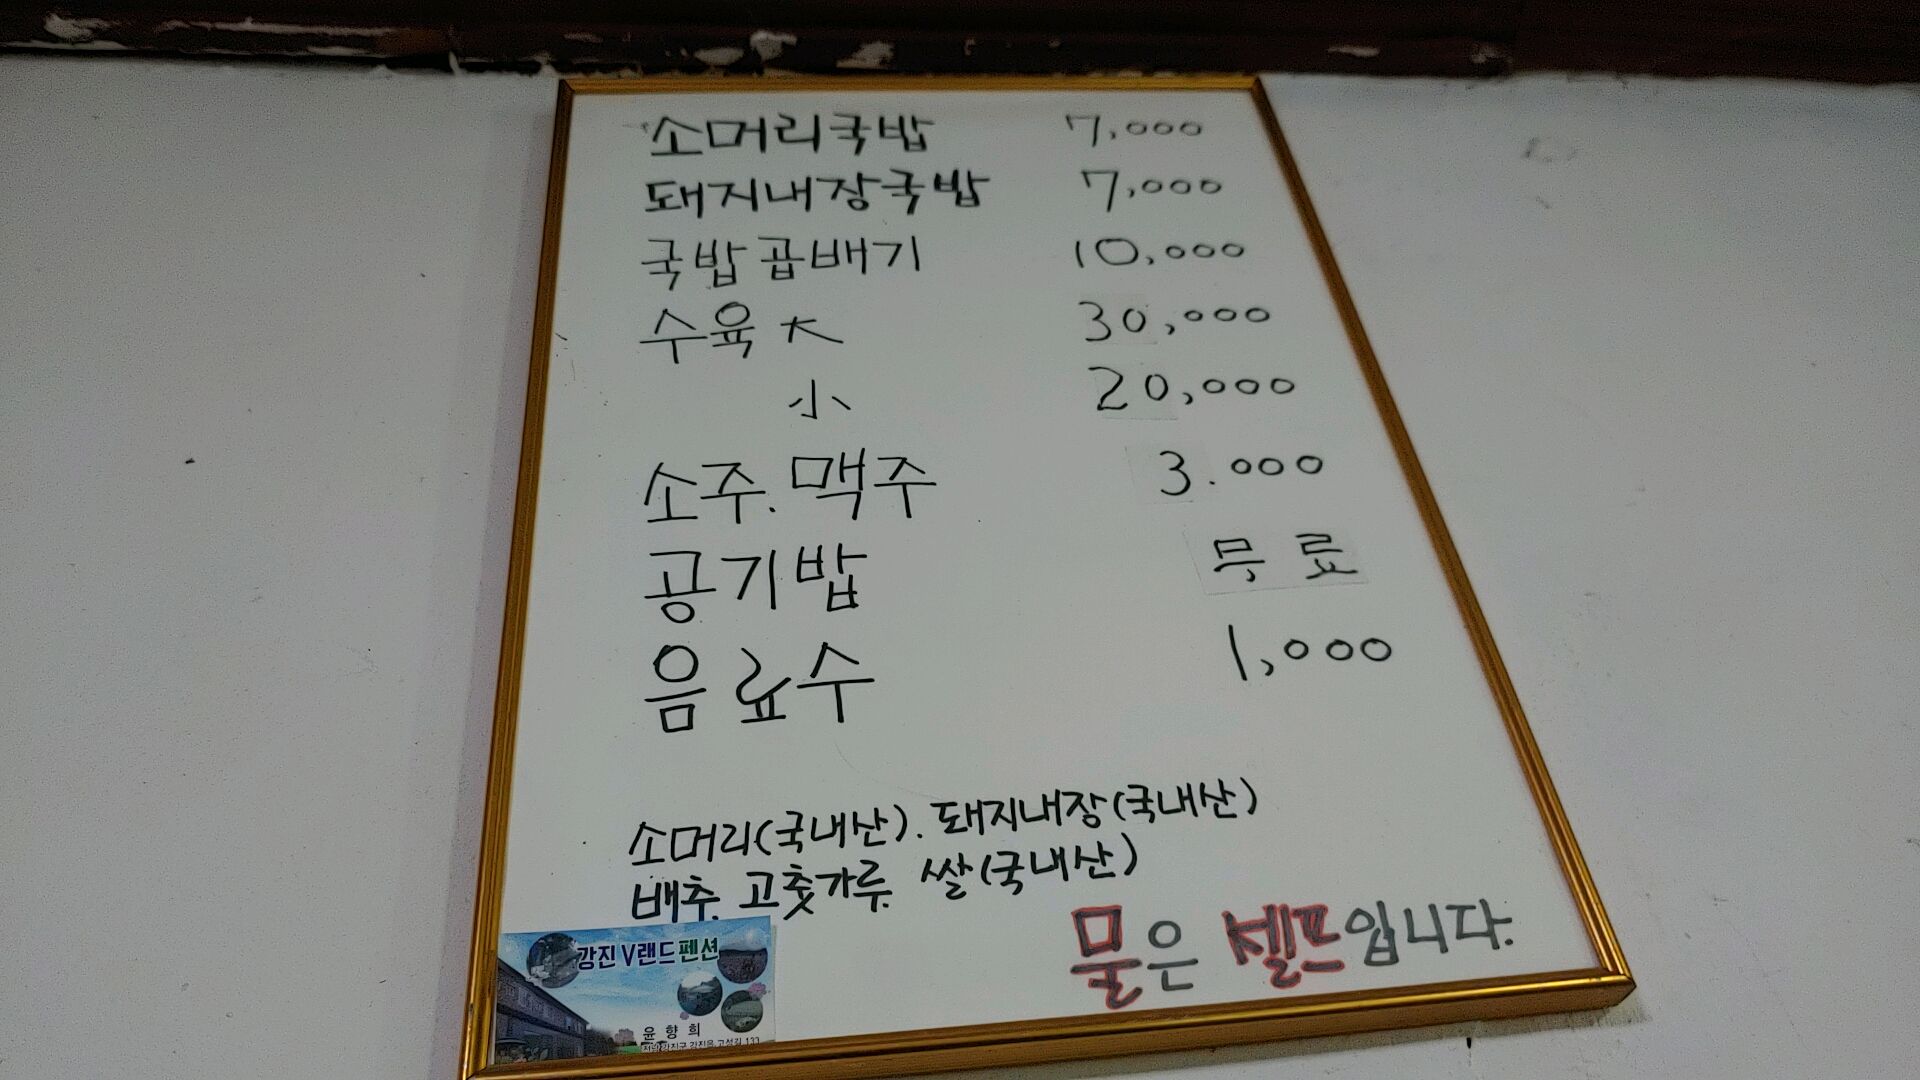 소머리국밥 7,000
돼지내장국밥 7,000
국밥곱배기 10,000
수육 大 30,000
小 20,000
소주. 맥주 3.000
공기밥 무료
음료수 1,000
소머리(국내산). 돼지내장(국내산)
배추. 고춧가루. 쌀(국내산)
물은 셀프입니다.
강진 V랜드펜션
윤향희
전남 강진군 강진읍 고성길 133